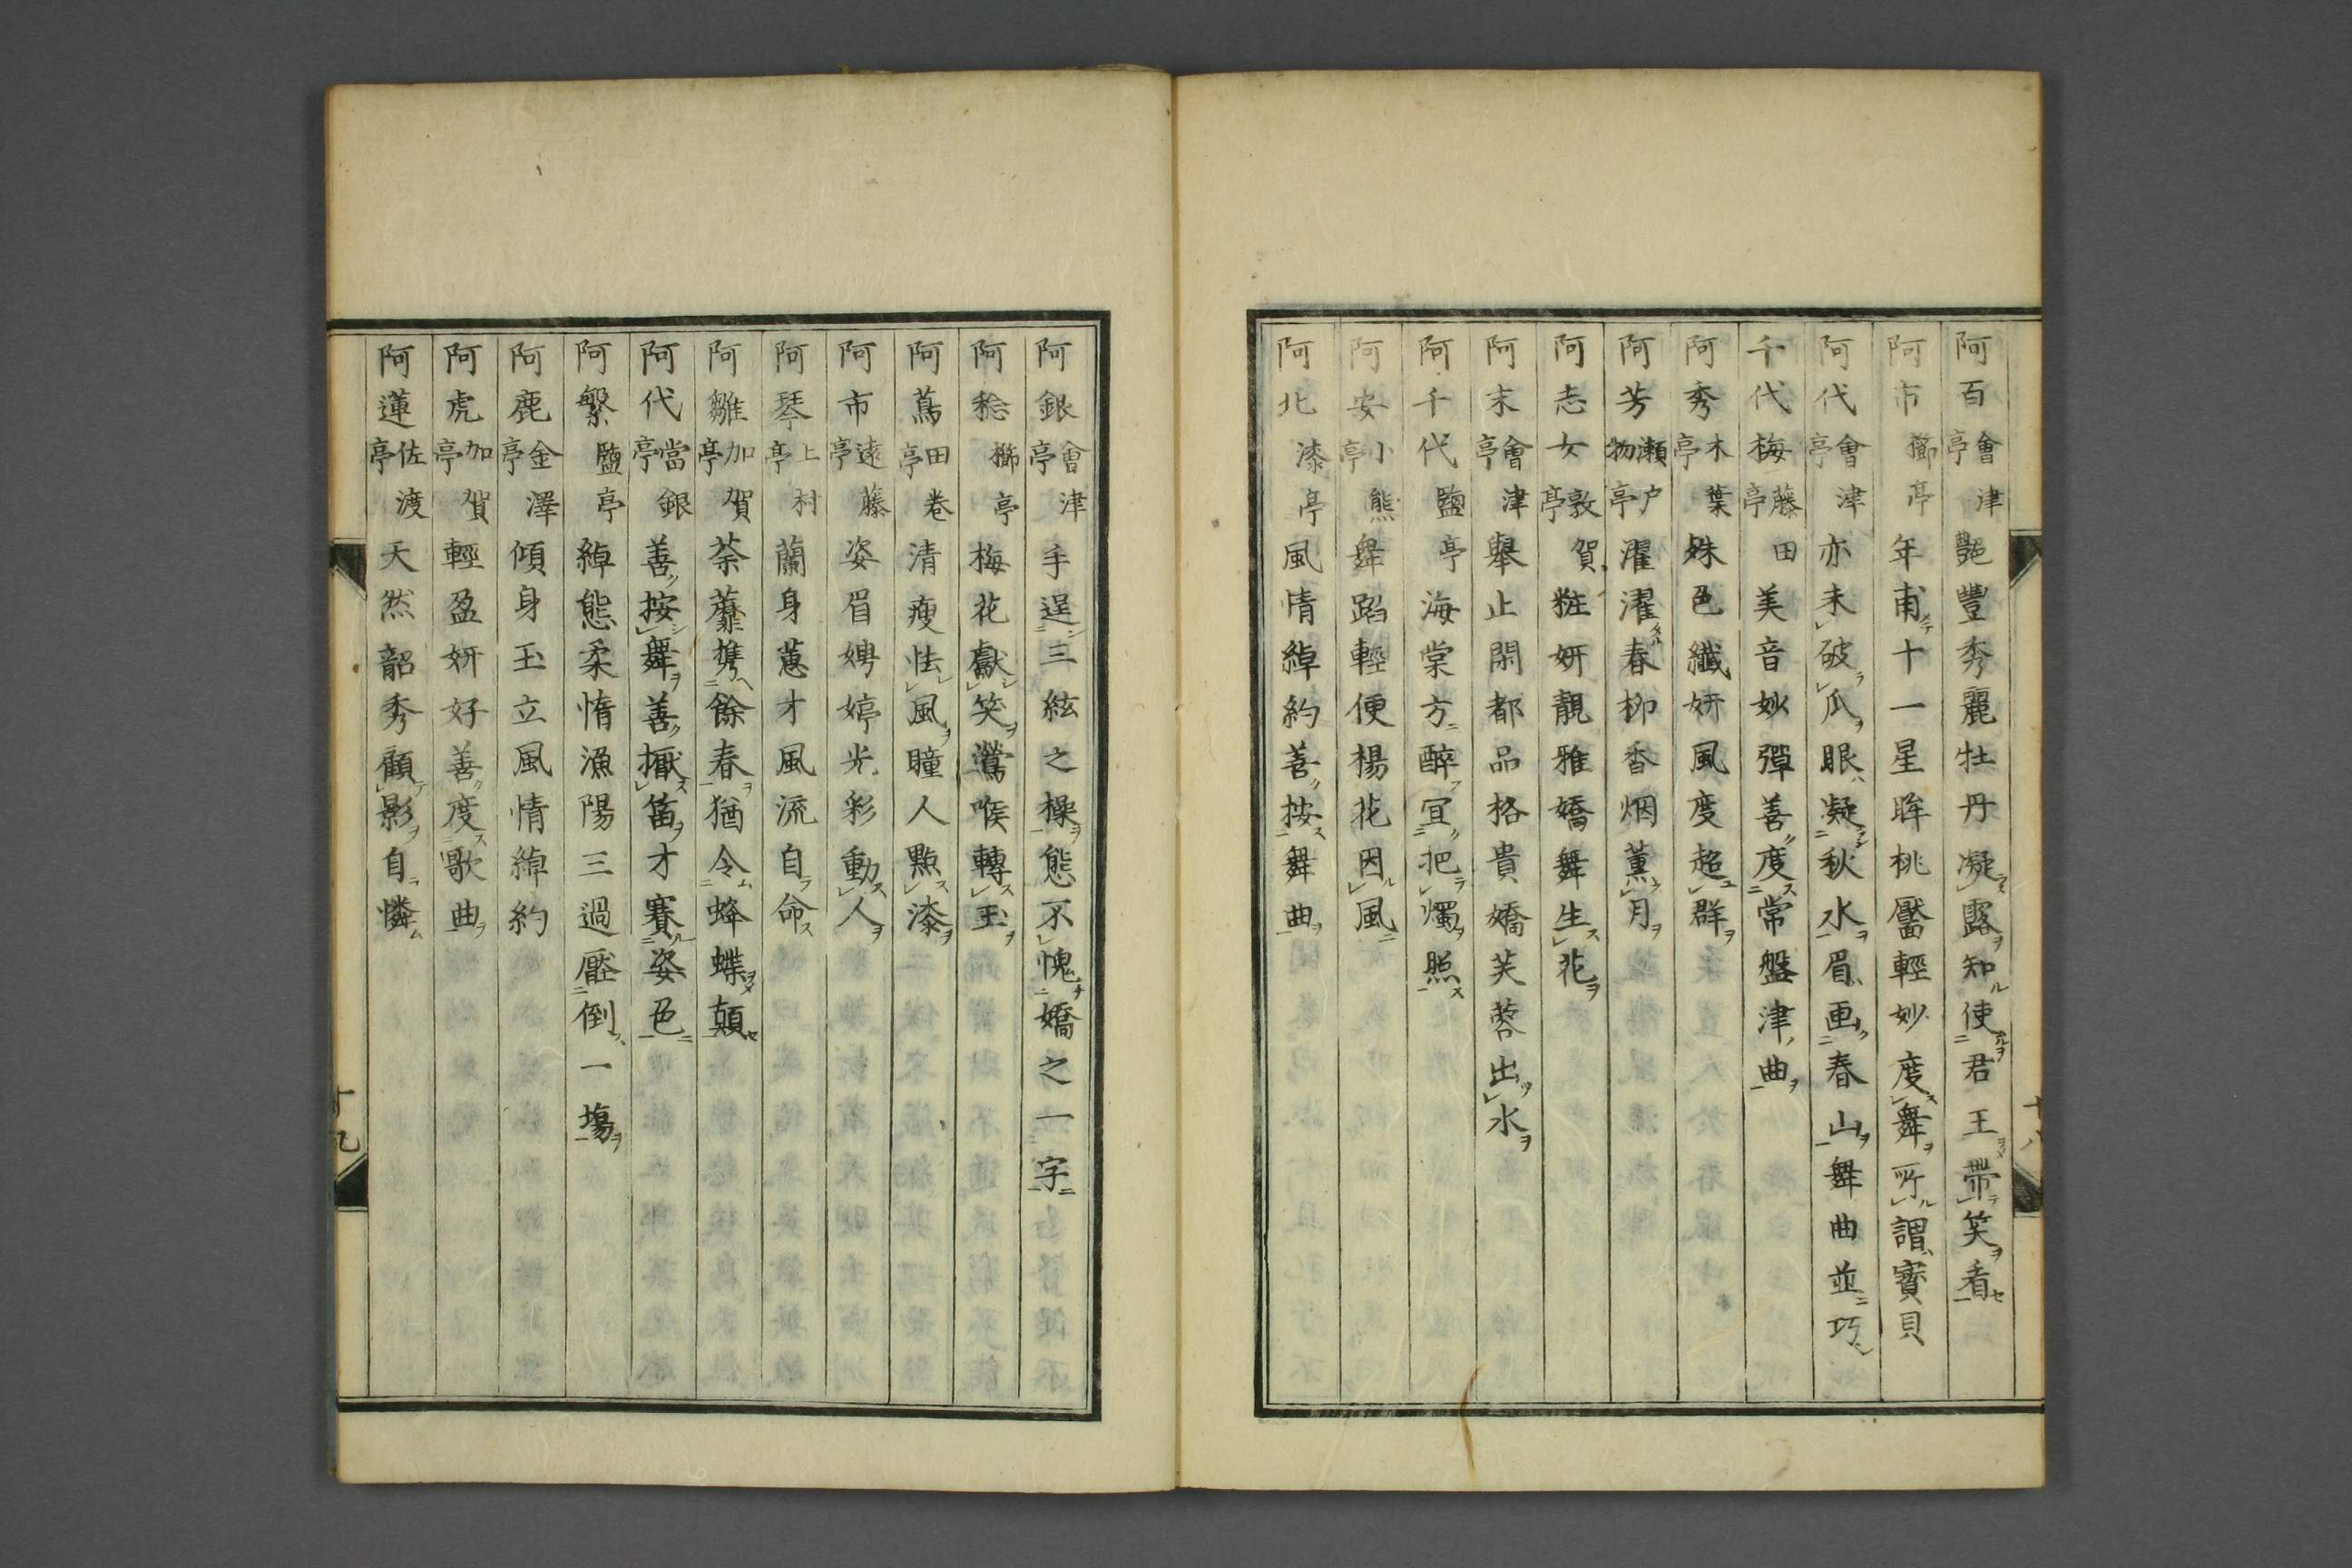 阿百會津亭艷豐秀麗牡丹凝露知使君王帶笑看
阿市櫛亭年甫十一星眸桃靨輕妙度舞所謂寶貝
阿代會津亭亦未破瓜眼凝秋水眉画春山舞曲並巧
千代梅藤田亭美音妙彈善度常盤津曲
阿秀木葉亭姝色纖妍風度超群
阿芳瀬戸物亭濯濯春柳香烟薫月
阿志女敦賀亭粧妍靚雅嬌舞生花
阿末會津亭舉止閑都品格貴嬌芙蓉出水
阿千代鹽亭海棠方醉宜把燭照
阿安小熊亭舞蹈輕便楊花因風
阿北漆亭風情綽約善按舞曲
十八
阿銀會津亭手逞三絃之操態不愧嬌之一字
阿稔櫛亭梅花獻笑鶯喉轉玉
阿蔦田巻亭清瘦怯風瞳人點漆
阿市遠藤亭姿眉娉婷光彩動人
阿琴上村亭蘭身蕙才風流自命
阿雛加賀亭荼蘼携餘春猶令蜂蝶顛
阿代當銀亭善按舞善擫笛才賽姿色
阿繁鹽亭綽態柔情漁陽三過壓倒一塲
阿鹿金澤亭傾身玉立風情綽約
阿虎加賀亭輕盈妍好善度歌曲
阿蓮佐渡亭天然韶秀顧影自憐
十九